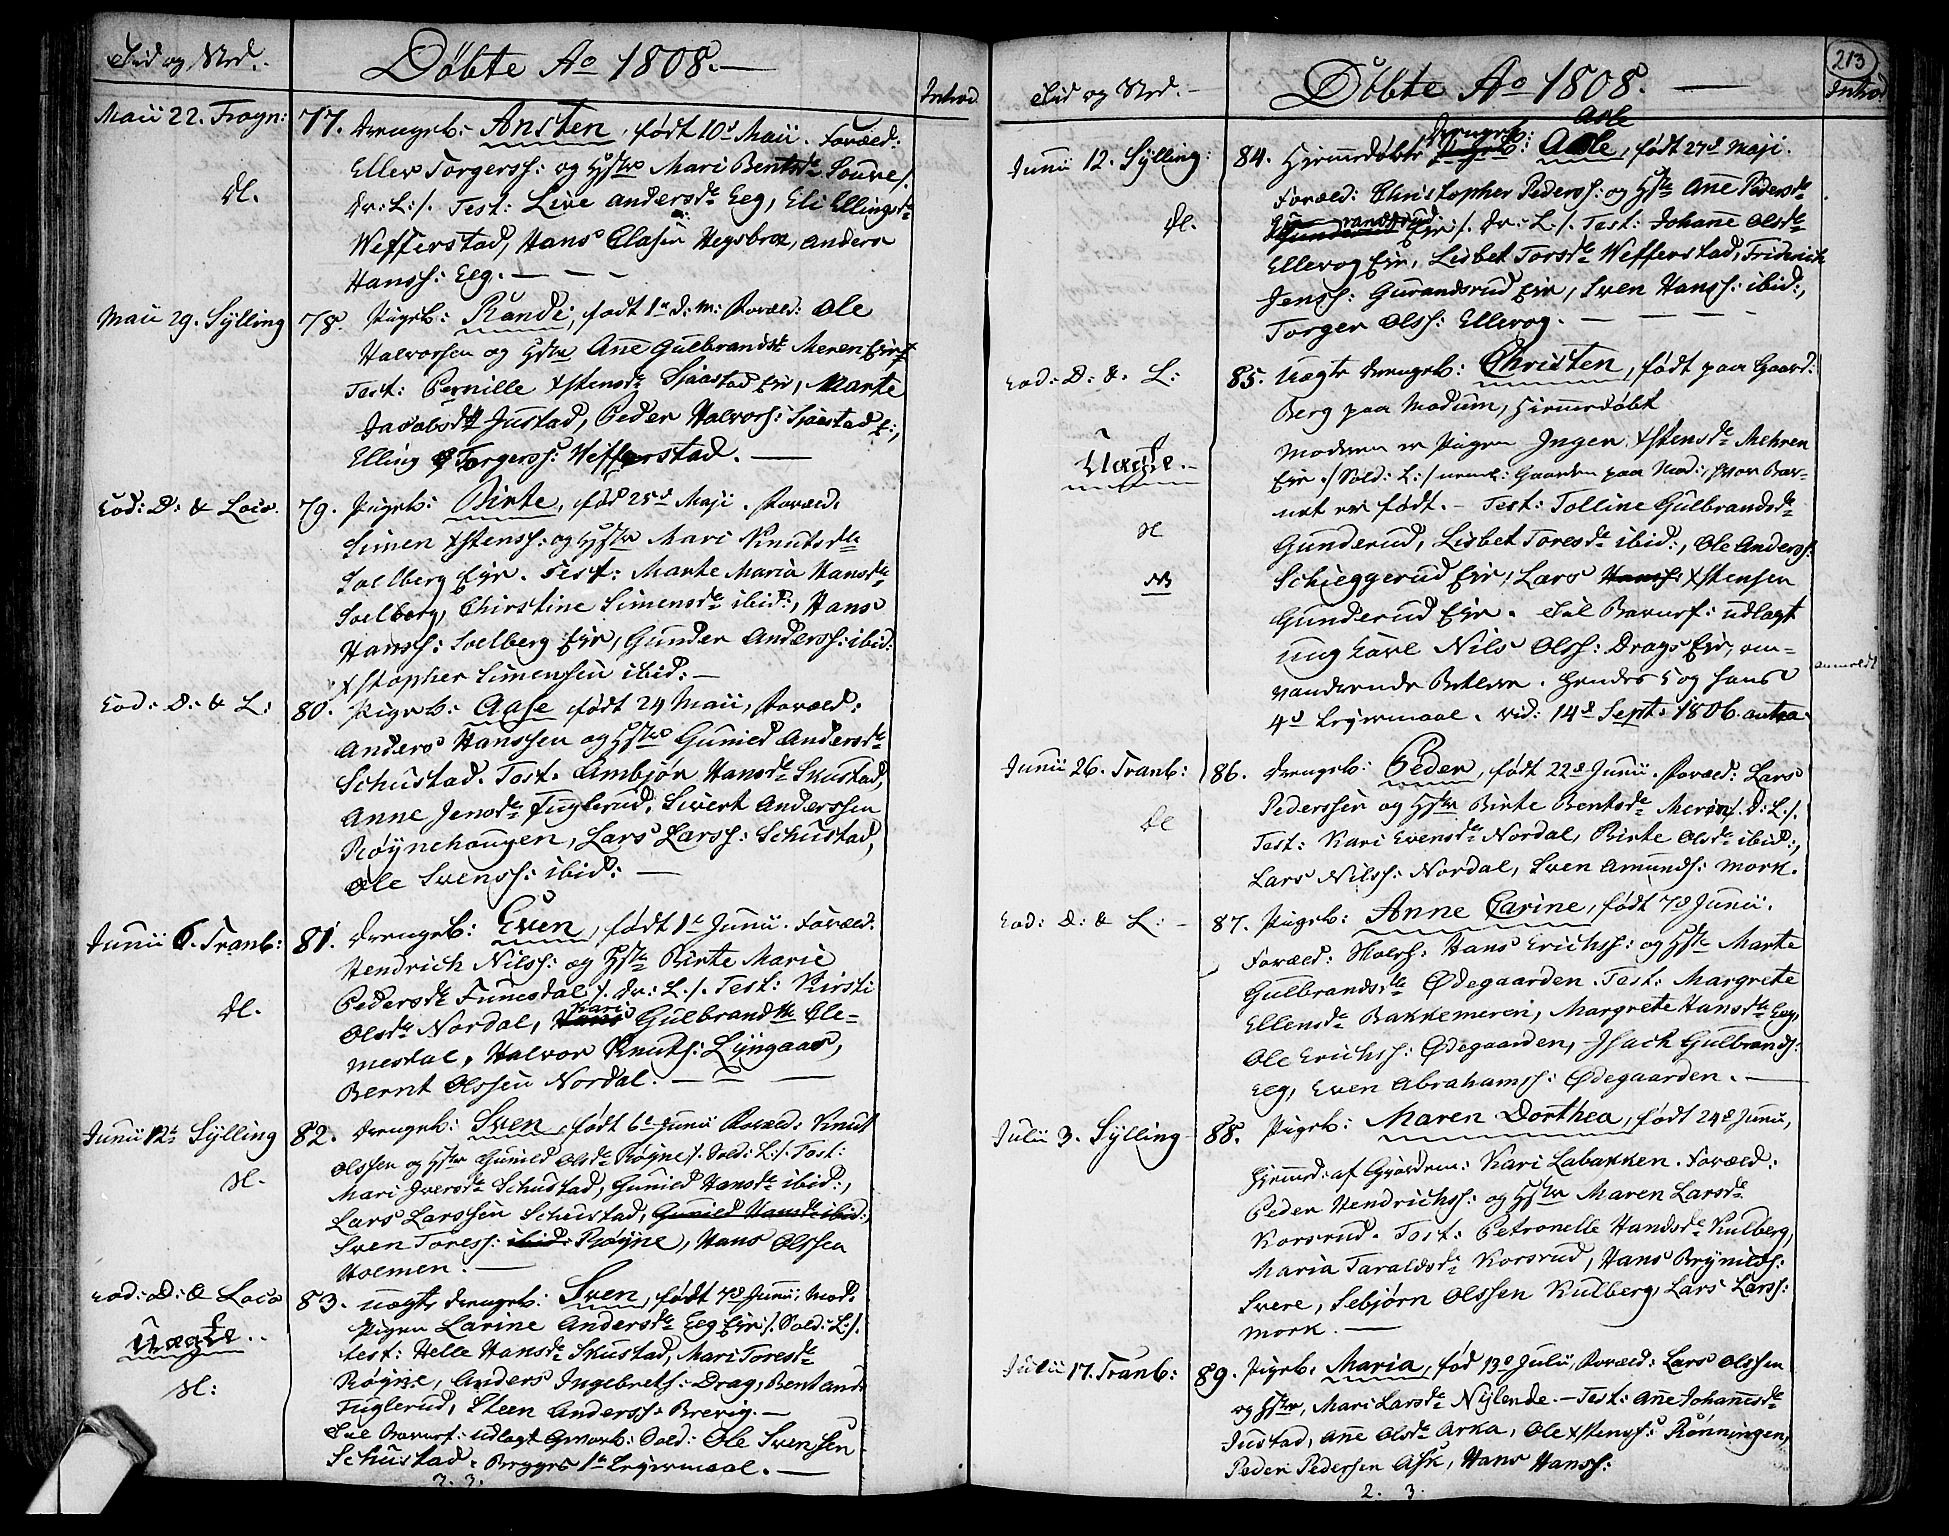 Tid og Sted.
Döbte Ao 1808.
Introd.
Maii 22. Frogn:
77. Drengeb: Ansten, födt 10d Maii. Foræld:
Ellev Torgerss: og Hstr Mari Bentsdr
dl.
Dr: L:/. Test: Live Andersdr Eeg, Eli Ellingsdr
Wefferstad, Hans Clasen Hegsbroe, Anders
Hanss: Eeg.
Maii 29. Sÿlling
78. Pigeb: Rande, födt 1ste d. M: Foræld: Ole
Halvorsen og Hstr Ane Gulbrandsdr Meren Eie
Test: Pernille Xstensdr Sjaastad Eie, Marte
Jacobsdr Justad, Peder Halvors: Sjaastad E:,
Elling Torgerss: Wefferstad.
Eod: D: & Loco.
79. Pigeb: Birte, fød 25d Maji. Foræld:
Simen Xstenss: og Hstr Mari Knutsdr
Solberg Eie. Test: Marte Maria Hansdr
Solberg, Chirstine Simensdr ibid:, Hans
Hanss: Solberg Eie, Gunder Anderss: ibid:
Xstopher Simensen ibid:
Eod: D: & L:
80. Pigeb: Aase födt 24 Maii, Foræld:
Anders Hanssen og Hstr Gunild Andersdr
Schustad. Test: Ambjör Hansdr Skustad,
Anne Jensdr Fuglerud, Sivert Anderssen
Röÿnehougen, Lars Larss: Schustad,
Ole Svenss: ibid:
Junii 6. Tranb:
81. Drengeb: Even, födt 1ste Junii. Foræld:
Hendrich Nilss: og Hstr Birte Marie
Pedersdr Funesdal /. Dr: L:/. Test: Kirsti
dl.
Kari
Olsdr Nordal, Hans Gulbrandsdr Cle-
mesdal, Halvor Knuts: Lÿngaas,
Bernt Olssen Nordal.
Junii 12te Sÿlling
82. Drengeb: Sven, födt 6te Junii Foræld: Knut
Olssen og Hstr Gunild Olsdr Röÿne /. Sold: L:/. Test:
sl.
Mari Iversdr Schustad, Gunild Hansdr ibid:,
Lars Larssen Schustad, Gunild Hansdr ibid:,
Sven Toress: ibid: Röÿne, Hans Olssen
Holmen.
Eod: D: & Loco
83. Uægte Drengeb: Sven, födt 7d Junii, Mod.
Uægte.
Pigen Larine Andersdr Eeg Eie /. Sold: L:/.
sl:
Test: Helle Hansdr Skustad, Mari Toresdr
Röÿne, Anders Ingebrets: Drag, Bent And:
Fuglerud, Steen Anderss: Brevig.
Til Barnef: udlagt Gevorb: Sold: Ole Svensen
Schustad. Begges 1ste Leÿermaal.
2. 3.
Tid og Sted.
Döbte Ao 1808.
213
Introd
Junii 12. Sÿlling:
Drengeb: Asle
84. Hiemedöbte Pigeb: Asle, födt 27d Maji.
Foræld: Christopher Pederss: og Hstr Ane Pedersdr
dl.
Gunderud Eie /. Dr: L:/. Test: Johane Olsdr
Ellevog Eie, Lisbet Torsdr Wefferstad, Friderich
Jenss: Gurandsrud Eie, Sven Hanss: ibid:,
Torger Olss: Ellevog.
Eod: D: & L:
85. Uægte Drengeb: Christen, födt paa Gaard:
Berg paa Modum, Hiemedöbt
Uægte.
Moderen er Pigen Inger Xstensdr Mehren
Eie /Sold: L:/ nemk: Gaarden paa Mod:, hvor Bar-
net er födt. Test: Tolline Gulbrandsdr
sl
Gunderud, Lisbet Toresdr ibid:, Ole Anderss:
NB
Schieggerud Eie, Lars Hanss: Xstensen
Gunderud Eie. Til Barnef: udlagt
ung Karl Nils Olss: Drags Eie, om-
vandrende Betlere. Hendes 5 og hans
4d Leÿermaal. vid: 14d Sept: 1806. antea
Junii 26. Tranb:
86. Drengeb: Peder, födt 22d Junii. Foræld: Lars
Pederssen og Hstr Birte Bentsdr Meren /. D: L:/.
dl
Test: Kari Evensdr Nordal, Birte Olsdr ibid:,
Lars Nilss: Nordal, Sven Amunds: Mork.
Eod: D: & L:
87. Pigeb: Anne Carine, födt 7d Junii.
Foræld: Skolh: Hans Erichss: og Hstr Marte
Gulbrandsdr Ödegaarden. Test: Margrete
Ellensdr Bakkemeren, Margrete Hansdr Eeg,
Ole Erichss: Ödegaarden, Isach Gulbrands:
Eeg, Even Abrahamss: Ödegaarden.
Julii 3. Sÿlling
88. Pigeb: Maren Dorthea, födt 24d Junii,
Hiemed: af Gjordem: Kari Labakken. Foræld:
Peder Hendrichss: og Hstr Maren Larsdr
Korsrud. Test: Petronelle Handsdr Kulberg,
Maria Taraldsdr Korsrud, Hans Brÿnilds:
Svere, Sebjörn Olssen Kulberg, Lars Larss:
Mork.
Julii 17. Tranb:
89. Pigeb: Maria, fød 13d Julii, Foræld: Lars Olssen
og Hstr, Mari Larsdr Nÿlende. Test: Ane Johannesdr
Justad, Ane Olsdr Arka, Ole Xstens: Rönningen,
Peder Pedersen Ask, Hans Hanss:
2. 3.